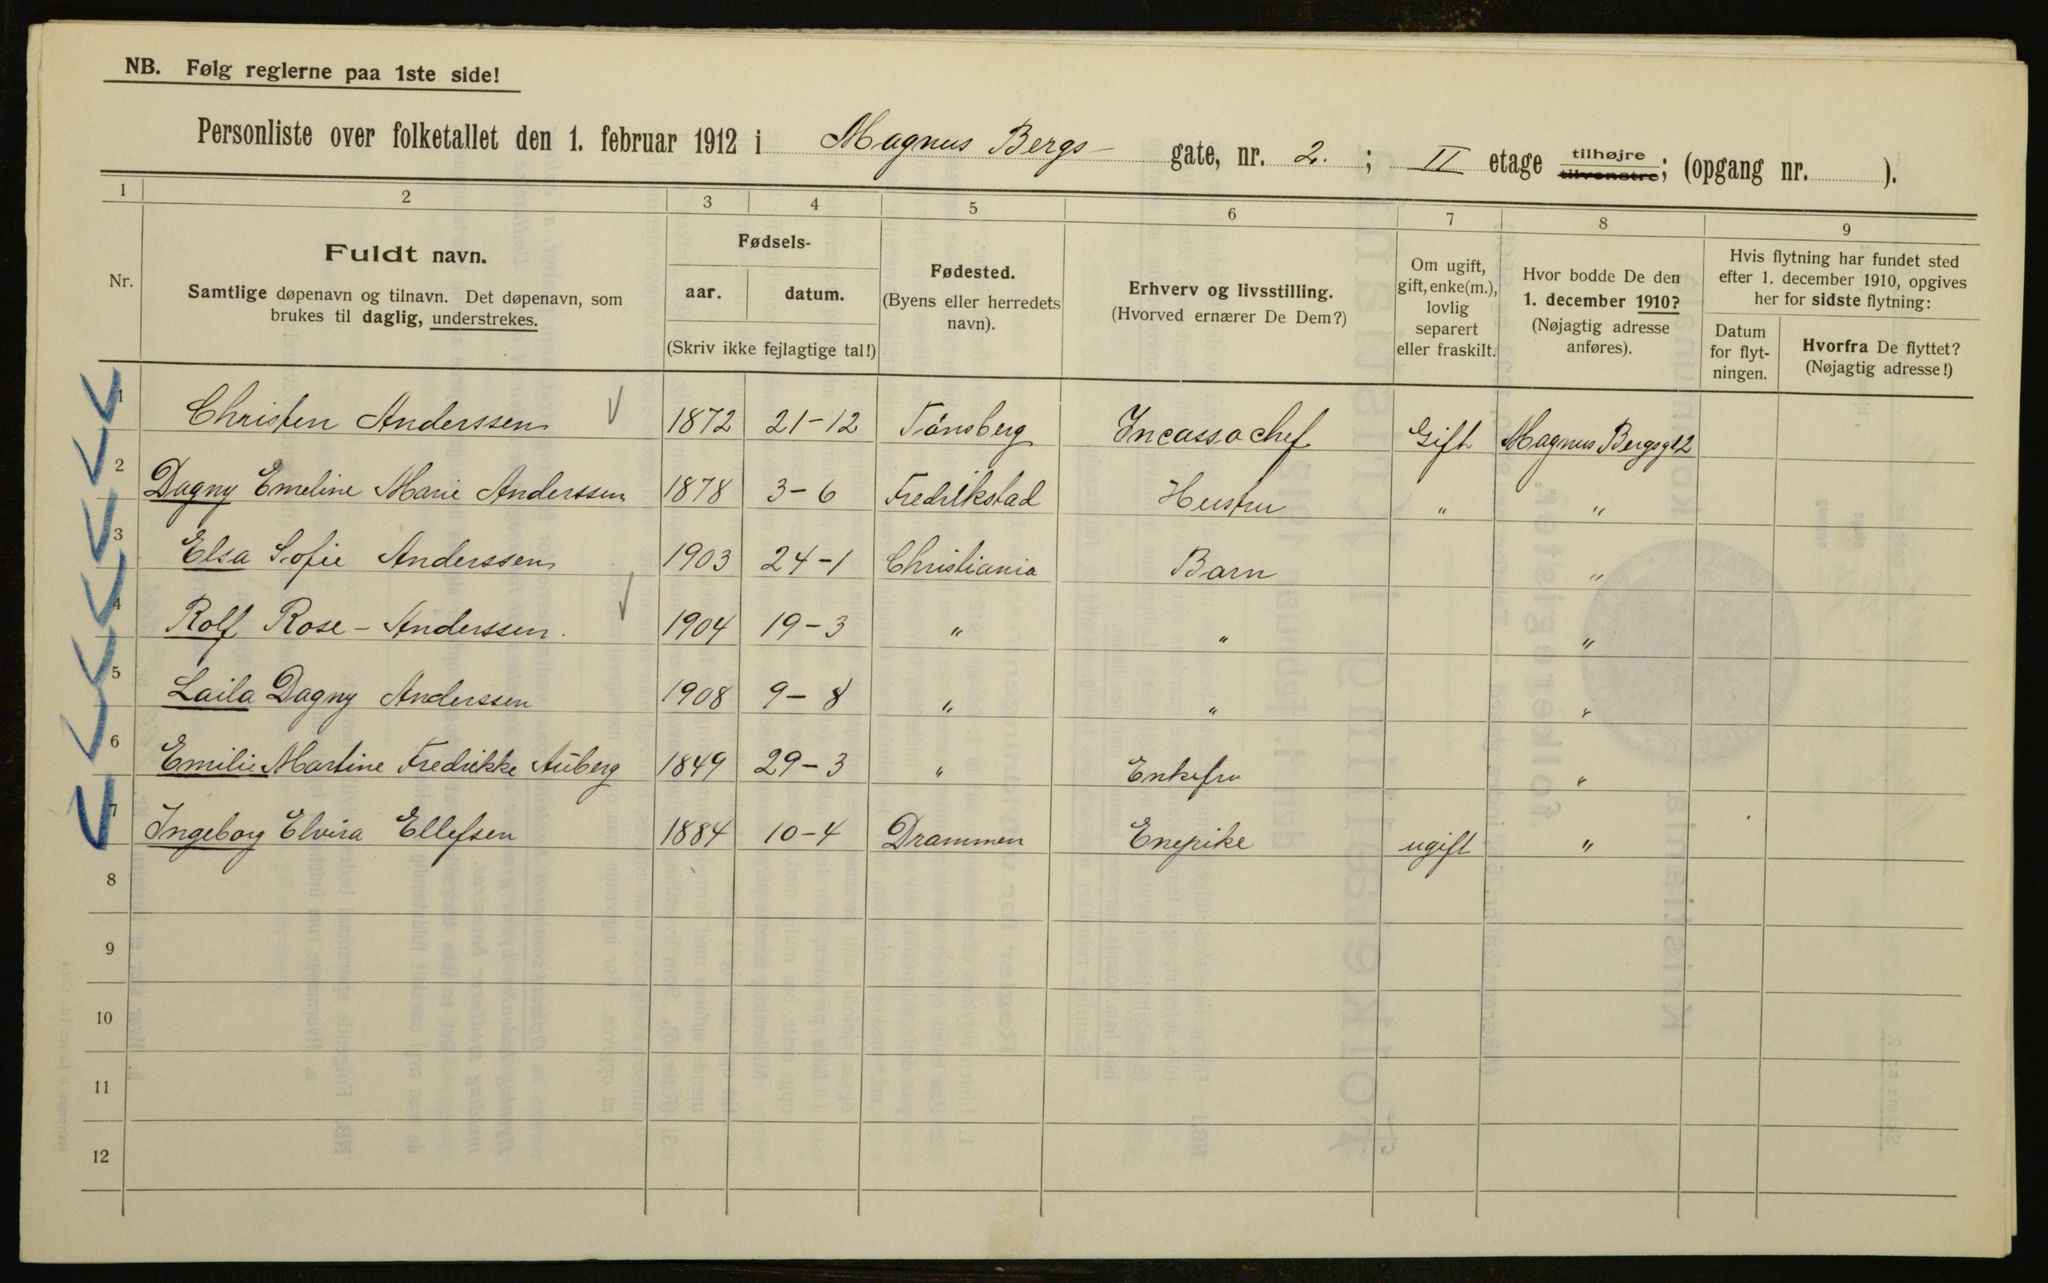 NB. Følg reglerne paa 1ste side!
Personliste over folketallet den 1. februar 1912 i Magnus Bergs- gate, nr. 2. ; II etage tilhøjre tilvenstre; (opgang nr. ).
1 2 3 4 5 6 7 8 9
Nr.
Fuldt navn.
Samtlige døpenavn og tilnavn. Det døpenavn, som
brukes til daglig, understrekes.
Fødsels-
aar. datum.
(Skriv ikke fejlagtige tal!)
Fødested.
(Byens eller herredets
navn).
Erhverv og livsstilling.
(Hvorved ernærer De Dem?)
Om ugift,
gift, enke(m.),
lovlig
separert
eller fraskilt.
Hvor bodde De den
1. december 1910?
(Nøjagtig adresse
anføres).
Hvis flytning har fundet sted
efter 1. december 1910, opgives
her for sidste flytning:
Datum
for flyt-
ningen.
Hvorfra De flyttet?
(Nøjagtig adresse!)
1 Christen Anderssen 1872 21-12 Tønsberg Incassochef Gift Magnus Bergsgt 2
2 Dagny Emeline Marie Anderssen 1878 3-6 Fredrikstad Hustru " "
3 Elsa Sofie Anderssen 1903 24-1 Christiania Barn "
4 Rolf Rose-Anderssen. 1904 19-3 " " "
5 Laila Dagny Anderssen 1908 9-8 " " "
6 Emilie Martine Fredrikke Auberg 1849 29-3 " Enkefru "
7 Ingeborg Elvira Ellefsen 1884 10-4 Drammen Enepike ugift "
8
9
10
11
12